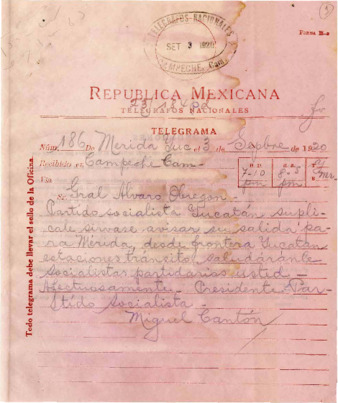 TELEGRAFOS NACIONALES
SET 3 1920
CAMPECHE, Cam.
REPUBLICA MEXICANA
TELEGRAFOS NACIONALES
TELEGRAMA
Núm. 186 De Merida Yuc. el 3 de Sepbre de 1920
Recibido en Campeche Cam
H. D.
7-10
pm
8-5
pm
Vía
Sr. Gral Alvaro Obregon.
Partido socialista Yucatán supli-
cale sirvase avisar su salida pa-
ra Mérida, desde frontera Yucatán
estaciones transito saludaranle
socialistas partidarios usted -
Afectuosamente - Presidente Par-
tido Socialista -
Miguel Cantón
Todo telegrama debe llevar el sello de la Oficina.